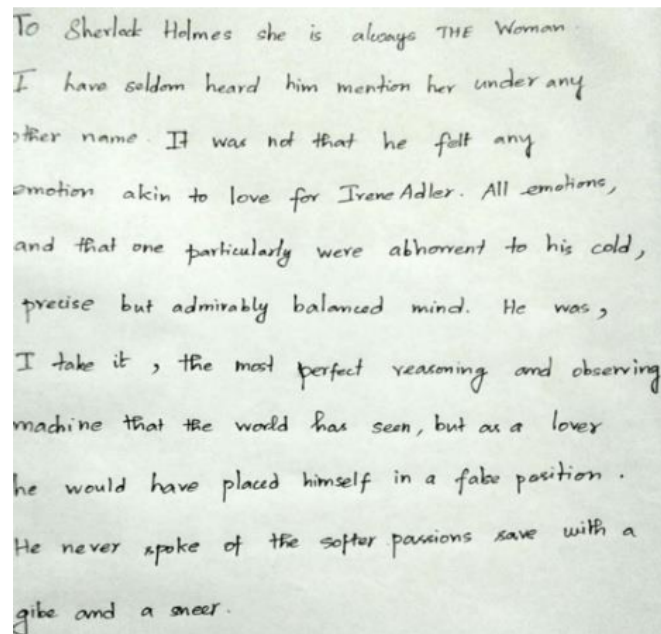 To Sherlock Holmes she is always THE Woman.
I have seldom heard him mention her under any
other name. It was not that he felt any
emotion akin to love for Irene Adler. All emotions,
and that one particularly were abhorrent to his cold,
precise but admirably balanced mind. He was,
I take it, the most perfect reasoning and observing
machine that the world has seen, but as a lover
he would have placed himself in a false position.
He never spoke of the softer passions save with a
gibe and a sneer.